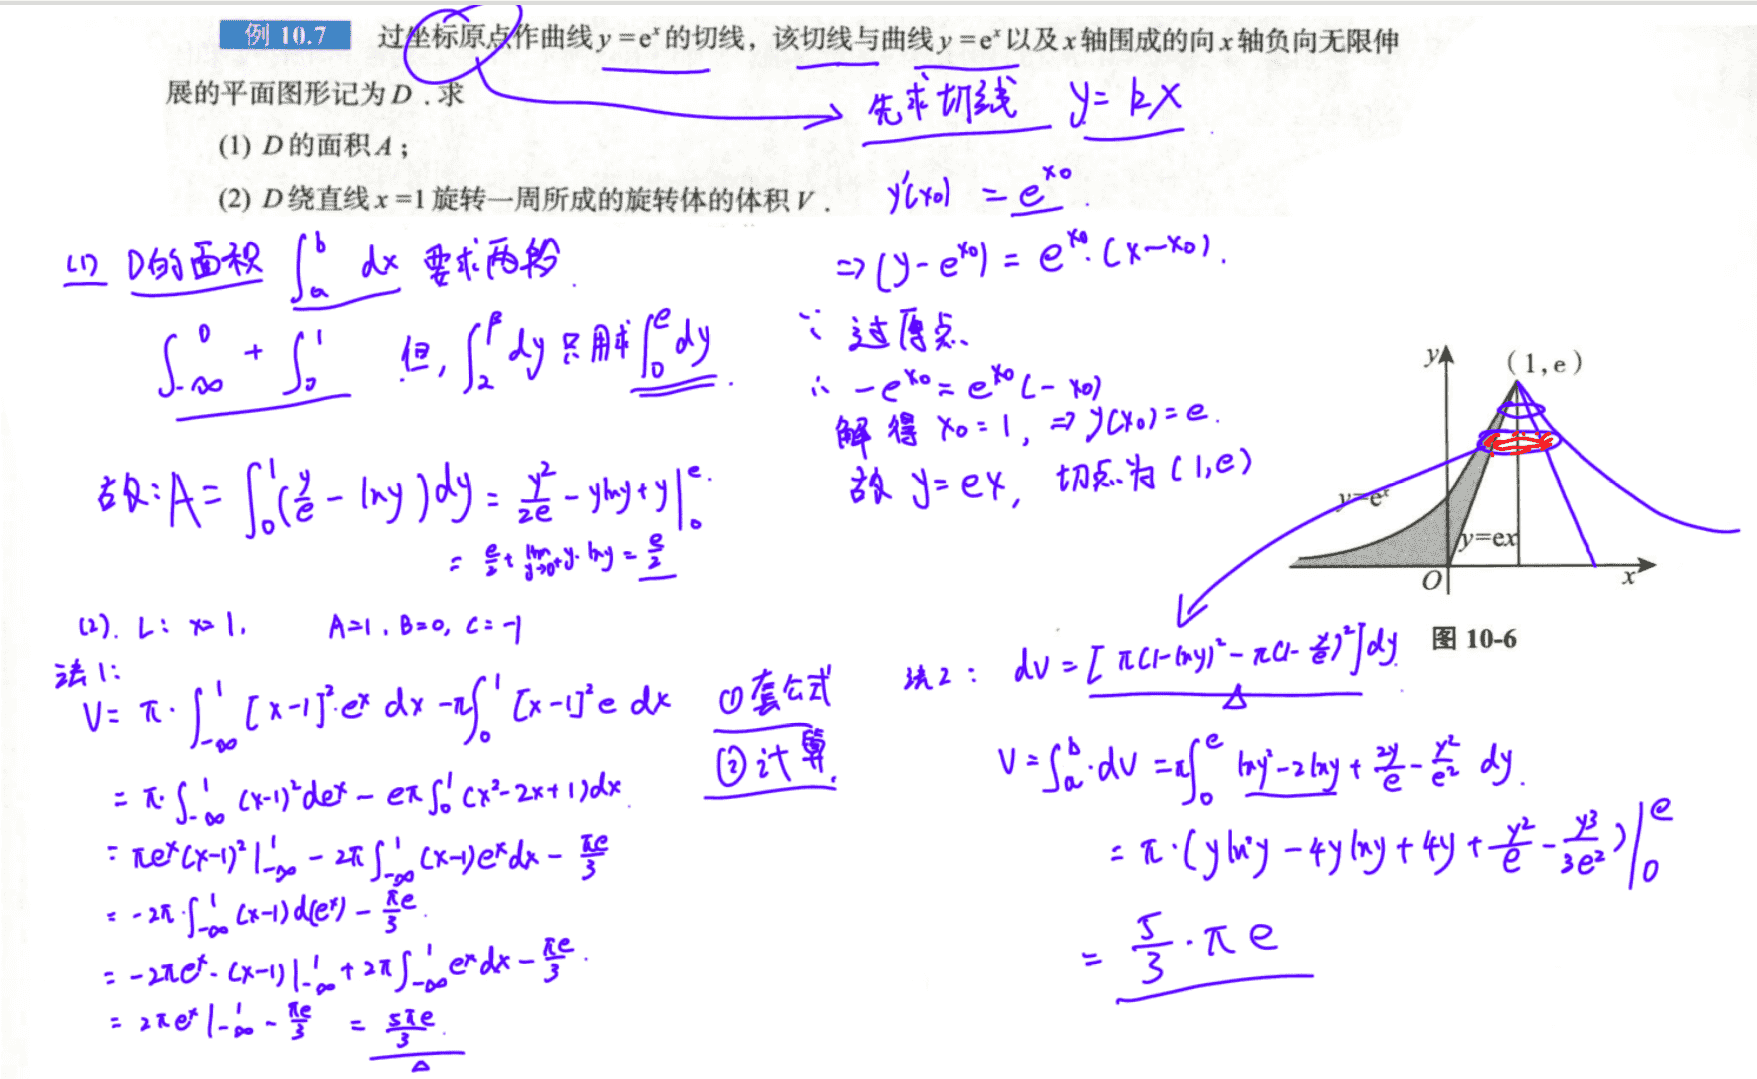 例 10.7 过坐标原点作曲线 y = eˣ 的切线，该切线与曲线 y = eˣ 以及 x 轴围成的向 x 轴负向无限伸
展的平面图形记为 D . 求
(1) D 的面积 A ;
(2) D 绕直线 x = 1 旋转一周所成的旋转体的体积 V .
先求切线 y = kx
y'(x₀) = e^{x₀} .
⇒ (y - e^{x₀}) = e^{x₀} · (x - x₀) .
∵ 过原点
∴ -e^{x₀} = e^{x₀} (-x₀)
解得 x₀ = 1 , ⇒ y(x₀) = e .
故 y = ex , 切点为 (1, e)
(1) D的面积 ∫_a^b dx 要求两部分 .
∫_{-∞}^0 + ∫_0^1 但, ∫_2^β dy 只用求 ∫_0^e dy .
故: A = ∫_0^1 (y/e - lny) dy = y²/2e - ylny + y |_0^e .
= e/2 + lim_{y→0⁺} y · lny = e/2
(2). L: x = 1 , A=1 , B=0 , C=-1
法1:
V = π · ∫_{-∞}^1 [x-1]² · eˣ dx - π ∫_0^1 [x-1]² e dx
= π · ∫_{-∞}^1 (x-1)² deˣ - eπ ∫_0^1 (x² - 2x + 1) dx
= πeˣ (x-1)² |_{-∞}^1 - 2π ∫_{-∞}^1 (x-1) eˣ dx - πe/3
= -2π · ∫_{-∞}^1 (x-1) d(eˣ) - πe/3 .
= -2πeˣ · (x-1) |_{-∞}^1 + 2π ∫_{-∞}^1 eˣ dx - πe/3 .
= 2πeˣ |_{-∞}^1 - πe/3 = 5πe/3
① 套公式
② 计算 .
y
(1, e)
y=eˣ
y=ex
O
x
图 10-6
法2: dV = [π(1-lny)² - π(1-y/e)²] dy
V = ∫_a^b · dV = π ∫_0^e ln²y - 2lny + 2y/e - y²/e² dy .
= π · (yln²y - 4ylny + 4y + y²/e - y³/3e²) |_0^e
= 5/3 · πe